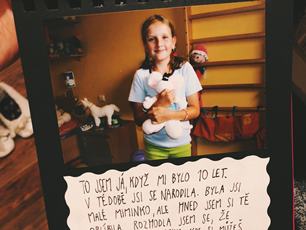 TO JSEM JÁ, KDYŽ MI BYLO 10 LET.
V TÉ DOBĚ JSI SE NARODILA. BYLA JSI
MALÉ MIMINKO, ALE MNED JSEM SI TĚ
OBLÍBILA. ROZHODLA JSEM SE, ŽE
SI MŮŽEŠ